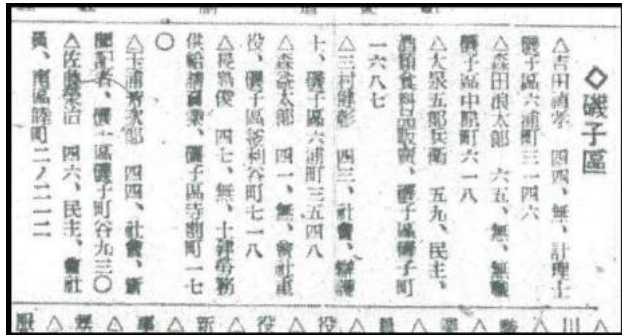 ◇磯子區
△吉田頑孝 四四、無、計理士
磯子區六浦町三一四六
△森田浪太郎 六五、無、無職
磯子區中原町六一八
△大泉五郎兵衛 五九、民主、
酒類食料品販賣、磯子區磯子町
一六八七
△三村健彰 四三、社會、辯護
士、磯子區六浦町三五四八
△森谷太郎 四一、無、會社重
役、磯子區釜利谷町七一八
△長島俊 四七、無、土建勞務
供給請負業、磯子區寺前町一七
〇
△玉浦斉次郎 四四、社會、新
聞記者、磯子區磯子町谷九三〇
△佐藤榮治 四六、民主、會社
員、南區睦町二ノ二一二